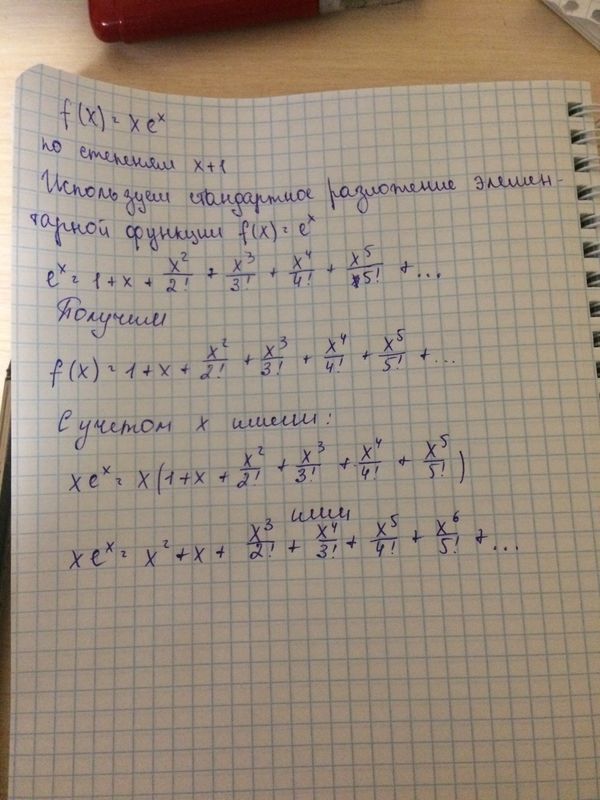 f(x) = x e^x
по степеням x+1
Используем стандартное разложение элемен-
тарной функции f(x) = e^x
e^x = 1 + x + x^2/2! + x^3/3! + x^4/4! + x^5/5! + ...
Получим
f(x) = 1 + x + x^2/2! + x^3/3! + x^4/4! + x^5/5! + ...
С учетом x имеем:
x e^x = x(1 + x + x^2/2! + x^3/3! + x^4/4! + x^5/5!)
или
x e^x = x^2 + x + x^3/2! + x^4/3! + x^5/4! + x^6/5! + ...